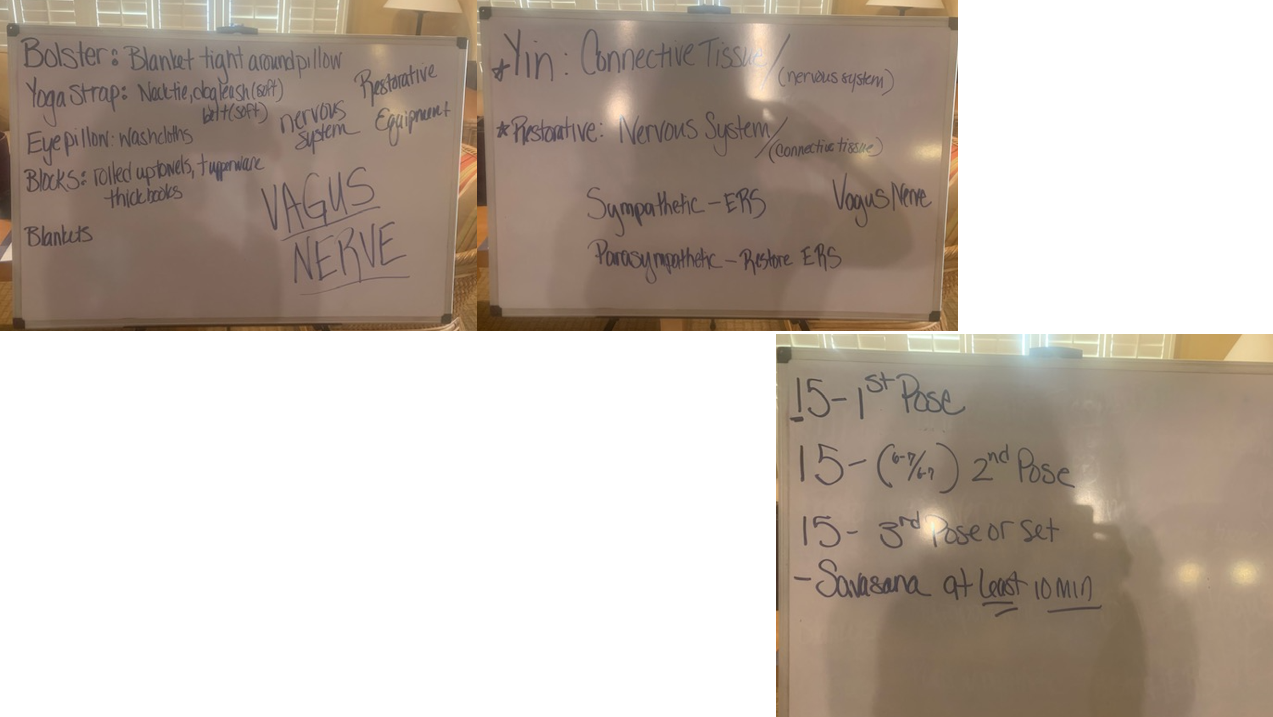 Bolster: Blanket tight around pillow
Yoga Strap: Necktie, dog leash (soft)
belt (soft)
Eye pillow: washcloths
Blocks: rolled up towels, tupperware
thick books
Blankets
Restorative
Equipment
nervous
system
VAGUS
NERVE
*Yin: Connective Tissue/
(nervous system)
*Restorative: Nervous System/
(connective tissue)
Sympathetic - ERS
Vagus Nerve
Parasympathetic - Restore ERS
15- 1st Pose
15- (6-7/6-7) 2nd Pose
15- 3rd Pose or set
- Savasana at least 10 min